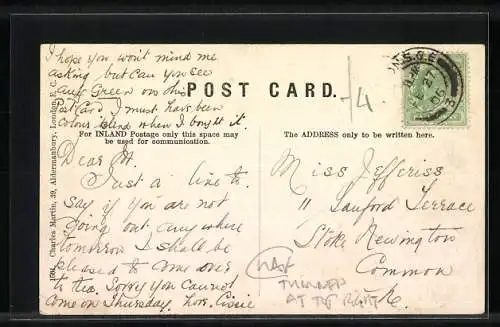 I hope you won't mind me
asking but can you see
any Green on this
Post Card I must have been
colour blind when I bought it.
POST CARD.
For INLAND Postage only this space may
be used for communication.
The ADDRESS only to be written here.
Dear M.
Just a line to
say if you are not
going out any where
tomorrow I shall be
pleased to come over
to tea. Sorry you cannot
come on Thursday. Love Cissie
Miss Jefferiss
11 Sanford Terrace
Stoke Newington
Common
N.
1/4
THINNED
AT TOP RIGHT
Charles Martin, 39, Aldermanbury, London, E.C.